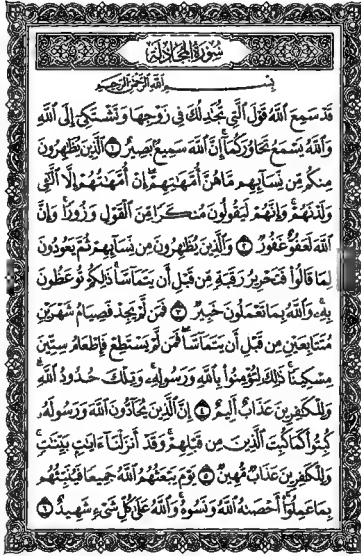 سُورَةُ المُجَادلَة
بِسْمِ اللَّهِ الرَّحْمَنِ الرَّحِيمِ
قَدْ سَمِعَ اللَّهُ قَوْلَ الَّتِي تُجَادِلُكَ فِي زَوْجِهَا وَتَشْتَكِي إِلَى اللَّهِ
وَاللَّهُ يَسْمَعُ تَحَاوُرَكُمَا إِنَّ اللَّهَ سَمِيعٌ بَصِيرٌ ١ الَّذِينَ يُظَاهِرُونَ
مِنكُم مِّن نِّسَائِهِم مَّا هُنَّ أُمَّهَاتِهِمْ إِنْ أُمَّهَاتُهُمْ إِلَّا الَّتِي
وَلَدْنَهُمْ وَإِنَّهُمْ لَيَقُولُونَ مُنكَرًا مِّنَ الْقَوْلِ وَزُورًا وَإِنَّ
اللَّهَ لَعَفُوٌّ غَفُورٌ ٢ وَالَّذِينَ يُظَاهِرُونَ مِن نِّسَائِهِمْ ثُمَّ يَعُودُونَ
لِمَا قَالُوا فَتَحْرِيرُ رَقَبَةٍ مِّن قَبْلِ أَن يَتَمَاسَّا ذَلِكُمْ تُوعَظُونَ
بِهِ وَاللَّهُ بِمَا تَعْمَلُونَ خَبِيرٌ ٣ فَمَن لَّمْ يَجِدْ فَصِيَامُ شَهْرَيْنِ
مُتَتَابِعَيْنِ مِن قَبْلِ أَن يَتَمَاسَّا فَمَن لَّمْ يَسْتَطِعْ فَإِطْعَامُ سِتِّينَ
مِسْكِينًا ذَلِكَ لِتُؤْمِنُوا بِاللَّهِ وَرَسُولِهِ وَتِلْكَ حُدُودُ اللَّهِ
وَلِلْكَافِرِينَ عَذَابٌ أَلِيمٌ ٤ إِنَّ الَّذِينَ يُحَادُّونَ اللَّهَ وَرَسُولَهُ
كُبِتُوا كَمَا كُبِتَ الَّذِينَ مِن قَبْلِهِمْ وَقَدْ أَنزَلْنَا آيَاتٍ بَيِّنَاتٍ
وَلِلْكَافِرِينَ عَذَابٌ مُّهِينٌ ٥ يَوْمَ يَبْعَثُهُمُ اللَّهُ جَمِيعًا فَيُنَبِّئُهُم
بِمَا عَمِلُوا أَحْصَاهُ اللَّهُ وَنَسُوهُ وَاللَّهُ عَلَى كُلِّ شَيْءٍ شَهِيدٌ ٦